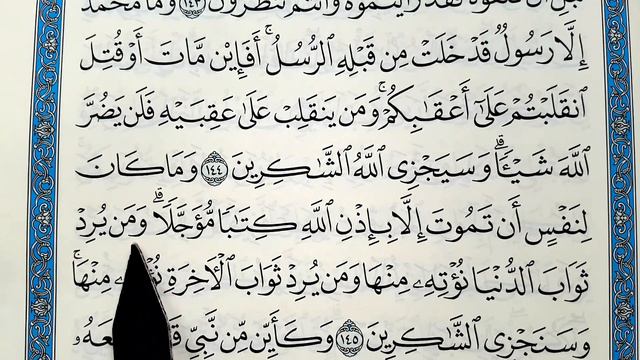 تَلْقَوْهُ فَقَدْ رَأَيْتُمُوهُ وَأَنتُمْ تَنظُرُونَ ١٤٣ وَمَا مُحَمَّدٌ
إِلَّا رَسُولٌ قَدْ خَلَتْ مِن قَبْلِهِ ٱلرُّسُلُ ۚ أَفَإِيْن مَّاتَ أَوْ قُتِلَ
ٱنقَلَبْتُمْ عَلَىٰٓ أَعْقَـٰبِكُمْ ۚ وَمَن يَنقَلِبْ عَلَىٰ عَقِبَيْهِ فَلَن يَضُرَّ
ٱللَّهَ شَيْـًٔا ۗ وَسَيَجْزِى ٱللَّهُ ٱلشَّـٰكِرِينَ ١٤٤ وَمَا كَانَ
لِنَفْسٍ أَن تَمُوتَ إِلَّا بِإِذْنِ ٱللَّهِ كِتَـٰبًا مُّؤَجَّلًا ۗ وَمَن يُرِدْ
ثَوَابَ ٱلدُّنْيَا نُؤْتِهِۦ مِنْهَا وَمَن يُرِدْ ثَوَابَ ٱلْـَٔاخِرَةِ مِنْهَا ۚ
وَسَنَجْزِى ٱلشَّـٰكِرِينَ ١٤٥ وَكَأَيِّن مِّن نَّبِىٍّ